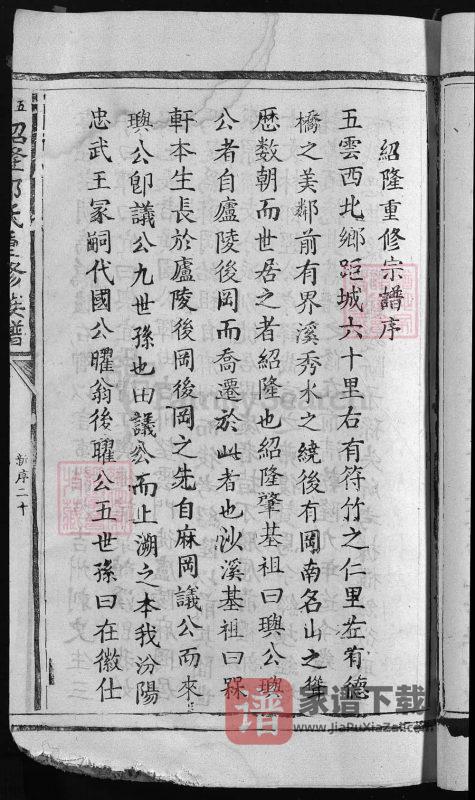 紹隆重修宗譜序
五雲西北鄉距城六十里右有符竹之仁里左有德
橋之美鄰前有界溪秀水之繞後有岡南名山之聳
歷数朝而世居之者紹隆也紹隆肇基祖曰璵公璵
公者自廬陵後岡而喬遷於此者也沙溪基祖曰槑
軒本生長於廬陵後岡後岡之先自麻岡議公而來
璵公卽議公九世孫也由議公而上溯之本我汾陽
忠武王冢嗣代國公曜翁後曜公五世孫曰在徽仕
五 紹隆郭氏重修族譜
新序二十
家谱下载
www.JiaPuXiaZai.com
谱